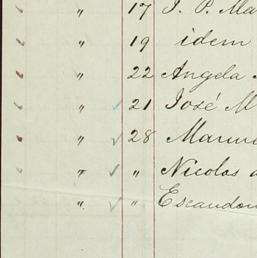 " 17 J. P. Ma
" 19 idem
" 22 Angela
" 21 José M
" 28 Manue
" " Nicolas
" " Escandon